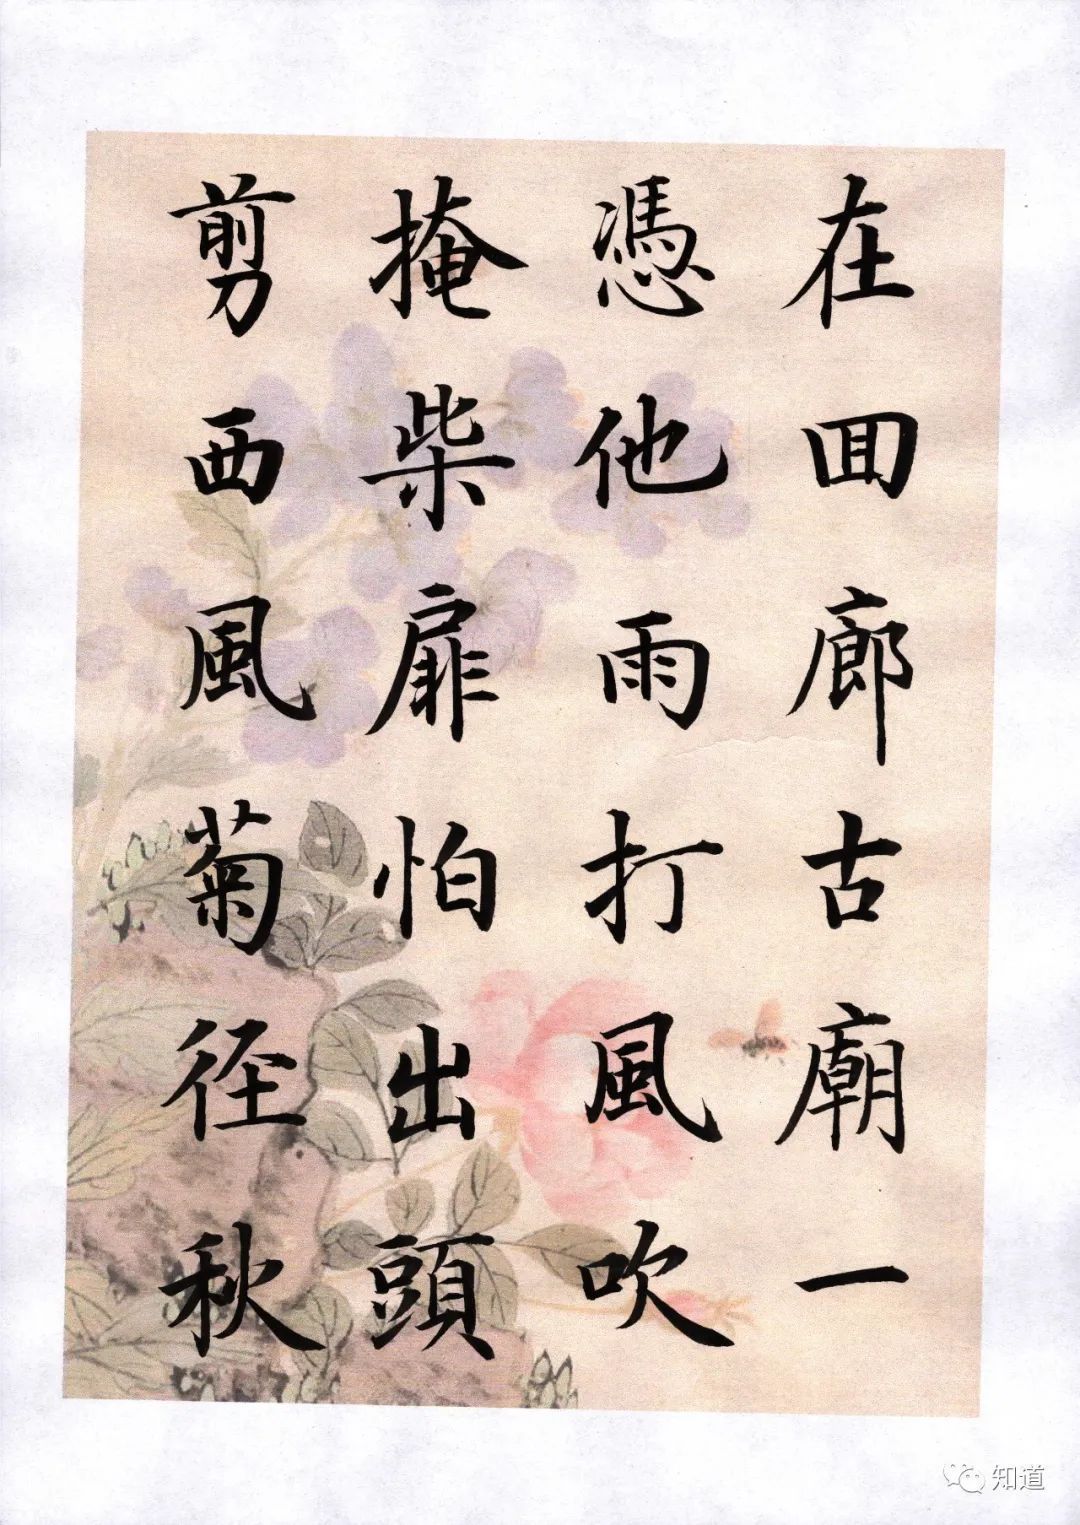 在囬廊古廟一
憑他雨打風吹
掩柴扉怕出頭
剪西風菊径秋
知道